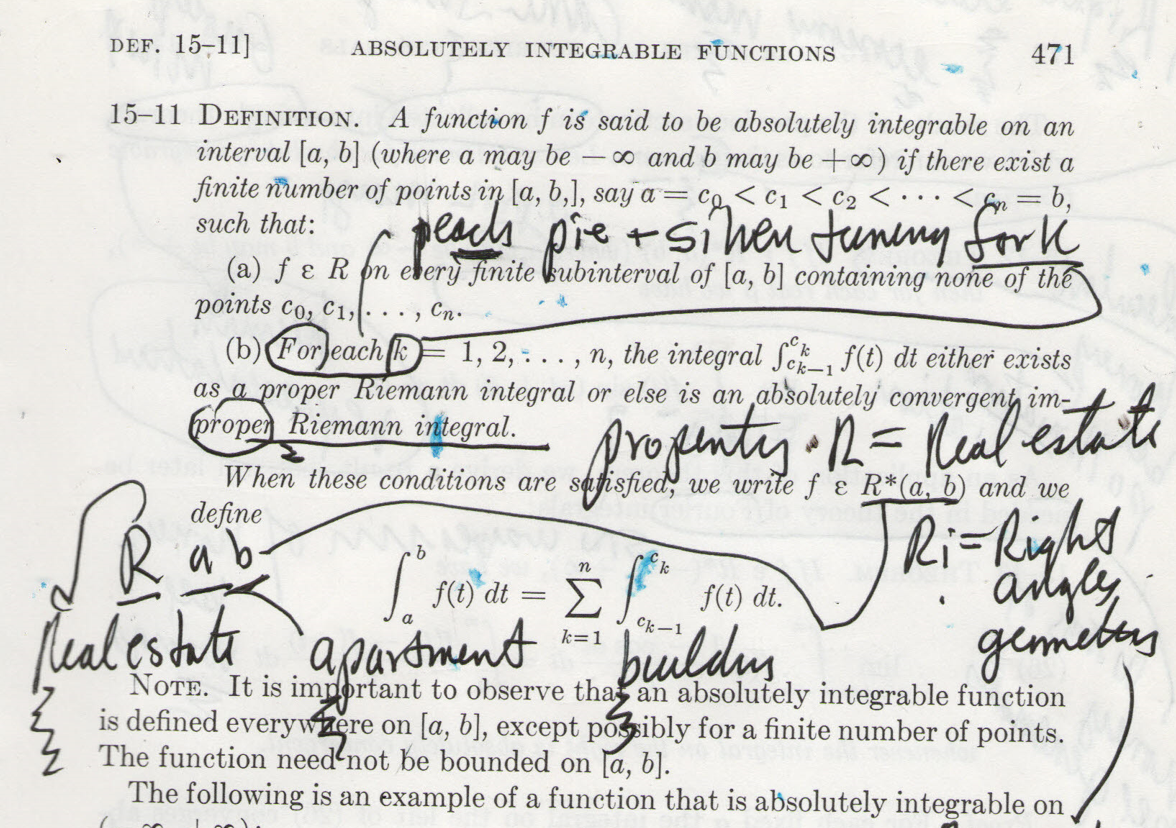 DEF. 15–11] ABSOLUTELY INTEGRABLE FUNCTIONS 471
15–11 DEFINITION. A function f is said to be absolutely integrable on an
interval [a, b] (where a may be −∞ and b may be +∞) if there exist a
finite number of points in [a, b,], say a = c₀ < c₁ < c₂ < · · · < cₙ = b,
such that:
peach pie + silver tuning fork
(a) f ε R on every finite subinterval of [a, b] containing none of the
points c₀, c₁, . . . , cₙ.
(b) For each k = 1, 2, . . . , n, the integral ∫_{c_{k−1}}^{c_k} f(t) dt either exists
as a proper Riemann integral or else is an absolutely convergent im-
proper Riemann integral.
R = Real estate
When these conditions are satisfied, we write f ε R*(a, b) and we
define
R a b
Ri = Right
angles
geometry
∫_a^b f(t) dt = ∑_{k=1}^n ∫_{c_{k−1}}^{c_k} f(t) dt.
Real estate apartment
NOTE. It is important to observe that an absolutely integrable function
is defined everywhere on [a, b], except possibly for a finite number of points.
The function need not be bounded on [a, b].
The following is an example of a function that is absolutely integrable on
(−∞, +∞):